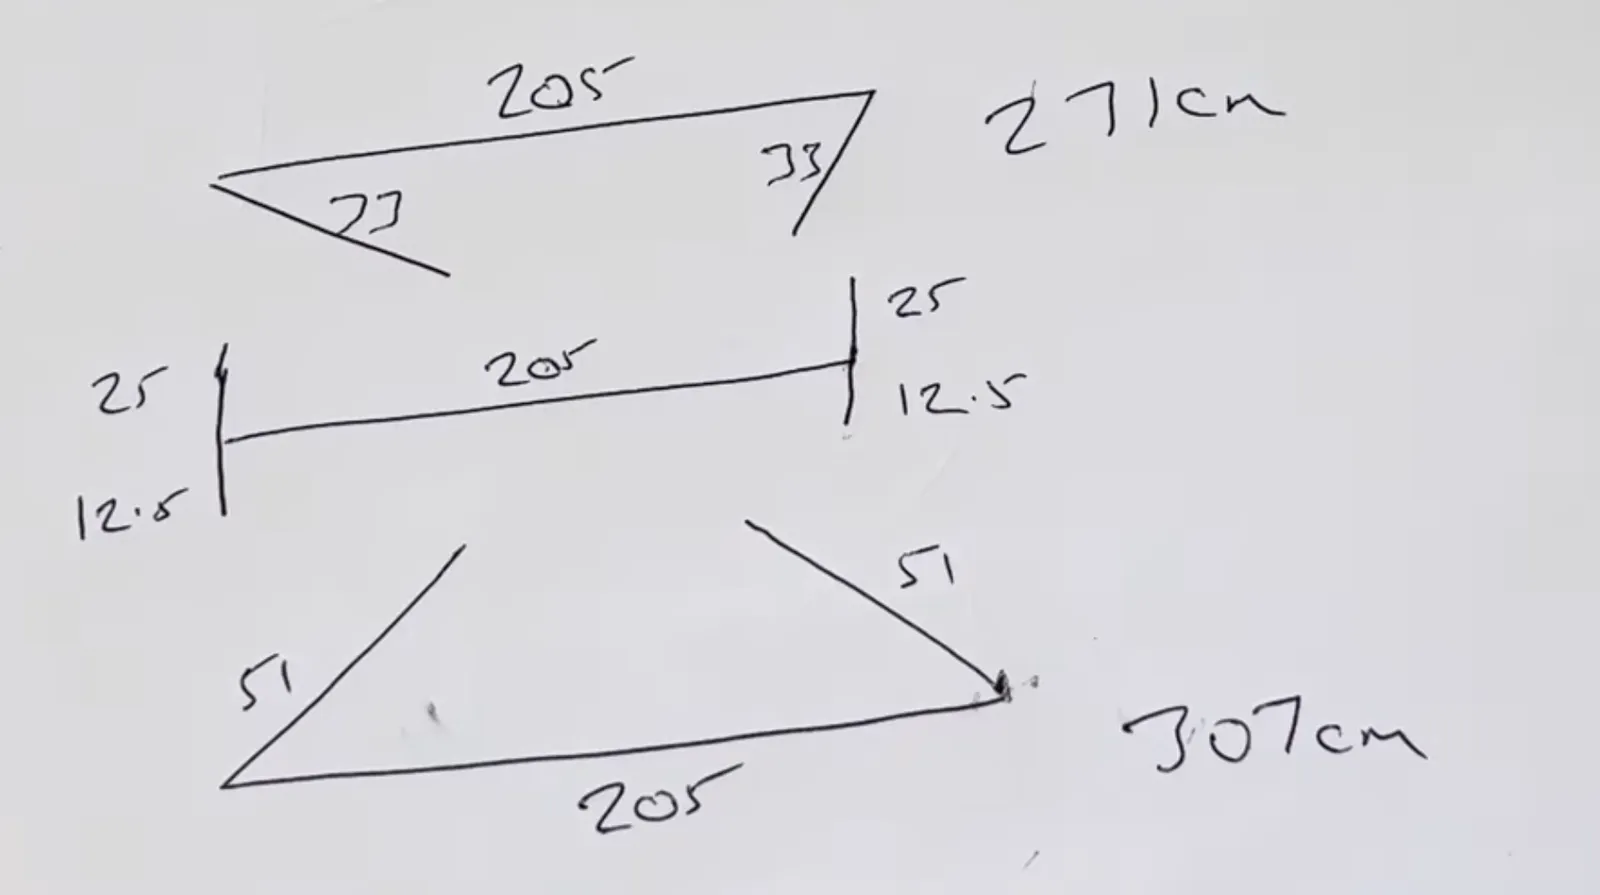 205
271cm
33
33
25
205
25
12.5
12.5
51
51
307cm
205